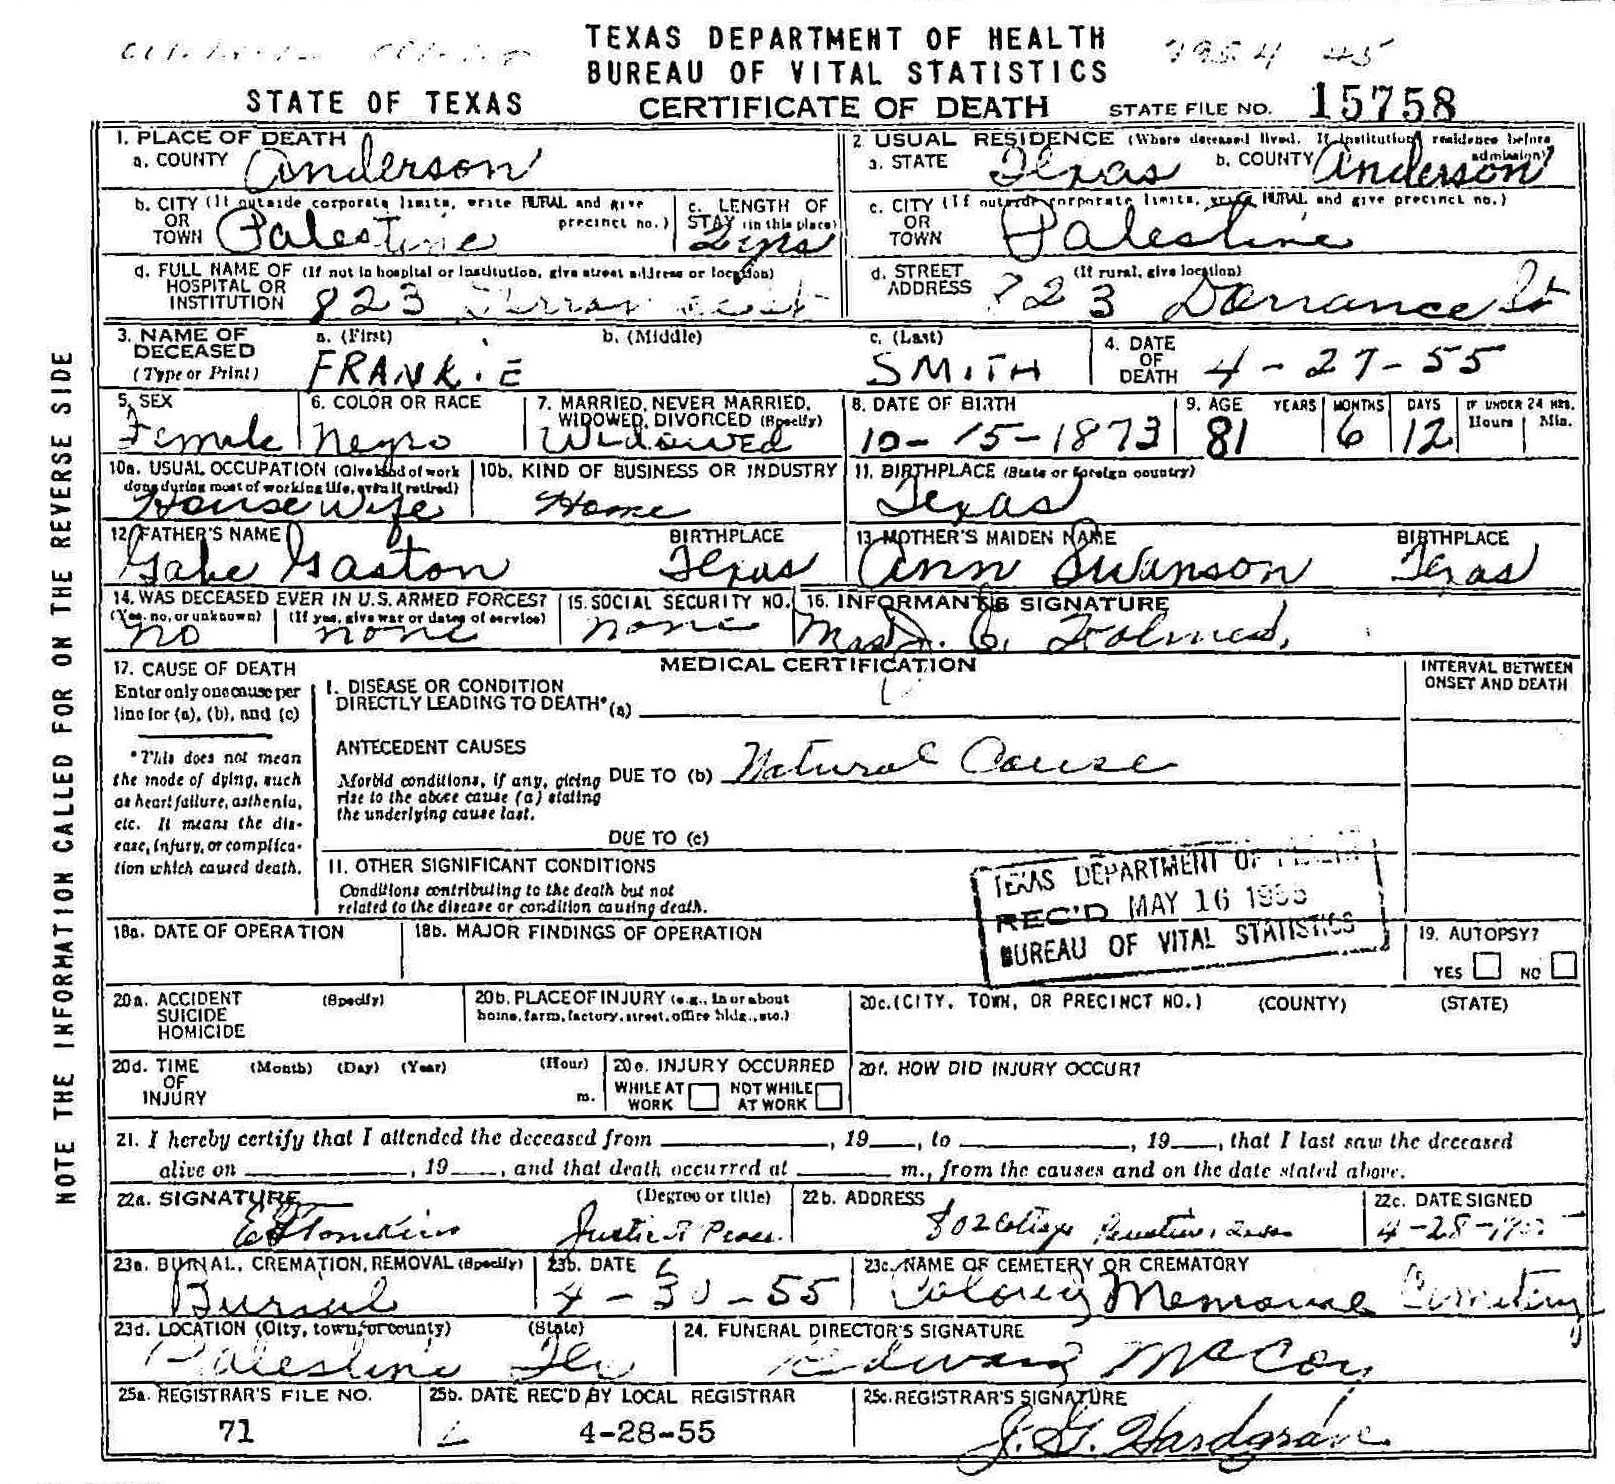 TEXAS DEPARTMENT OF HEALTH
BUREAU OF VITAL STATISTICS
STATE OF TEXAS CERTIFICATE OF DEATH STATE FILE NO. 15758
NOTE THE INFORMATION CALLED FOR ON THE REVERSE SIDE
1. PLACE OF DEATH
a. COUNTY Anderson
2. USUAL RESIDENCE (Where deceased lived. If institution: residence before admission)
a. STATE Texas b. COUNTY Anderson
b. CITY (If outside corporate limits, write RURAL and give precinct no.)
OR
TOWN Palestine
c. LENGTH OF
STAY (in this place)
2 yrs
c. CITY (If outside corporate limits, write RURAL and give precinct no.)
OR
TOWN Palestine
d. FULL NAME OF (If not in hospital or institution, give street address or location)
HOSPITAL OR
INSTITUTION 823
d. STREET (If rural, give location)
ADDRESS 823 Dorrance St
3. NAME OF
DECEASED
(Type or Print)
a. (First) b. (Middle) c. (Last)
FRANKIE SMITH
4. DATE
OF
DEATH 4-27-55
5. SEX
Female
6. COLOR OR RACE
Negro
7. MARRIED, NEVER MARRIED,
WIDOWED, DIVORCED (Specify)
Widowed
8. DATE OF BIRTH
10-15-1873
9. AGE YEARS MONTHS DAYS IF UNDER 24 HRS.
Hours Min.
81 6 12
10a. USUAL OCCUPATION (Give kind of work
done during most of working life, even if retired)
House Wife
10b. KIND OF BUSINESS OR INDUSTRY
Home
11. BIRTHPLACE (State or foreign country)
Texas
12. FATHER'S NAME BIRTHPLACE
Gabe Gaston Texas
13. MOTHER'S MAIDEN NAME BIRTHPLACE
Ann Swanson Texas
14. WAS DECEASED EVER IN U.S. ARMED FORCES?
(Yes, no, or unknown) (If yes, give war or dates of service)
no none
15. SOCIAL SECURITY NO.
none
16. INFORMANT'S SIGNATURE
Mrs J. C. Holmes
17. CAUSE OF DEATH
Enter only one cause per
line for (a), (b), and (c)
*This does not mean
the mode of dying, such
as heart failure, asthenia,
etc. It means the dis-
ease, injury, or complica-
tion which caused death.
MEDICAL CERTIFICATION
INTERVAL BETWEEN
ONSET AND DEATH
I. DISEASE OR CONDITION
DIRECTLY LEADING TO DEATH* (a)
ANTECEDENT CAUSES
Morbid conditions, if any, giving
rise to the above cause (a) stating
the underlying cause last.
DUE TO (b) Natural Cause
DUE TO (c)
II. OTHER SIGNIFICANT CONDITIONS
Conditions contributing to the death but not
related to the disease or condition causing death.
TEXAS DEPARTMENT OF HEALTH
REC'D MAY 16 1955
BUREAU OF VITAL STATISTICS
18a. DATE OF OPERATION
18b. MAJOR FINDINGS OF OPERATION
19. AUTOPSY?
YES NO
20a. ACCIDENT (Specify)
SUICIDE
HOMICIDE
20b. PLACE OF INJURY (e.g., in or about
home, farm, factory, street, office bldg., etc.)
20c. (CITY, TOWN, OR PRECINCT NO.) (COUNTY) (STATE)
20d. TIME (Month) (Day) (Year) (Hour)
OF
INJURY m.
20e. INJURY OCCURRED
WHILE AT WORK NOT WHILE AT WORK
20f. HOW DID INJURY OCCUR?
21. I hereby certify that I attended the deceased from , 19 , to , 19 , that I last saw the deceased
alive on , 19 , and that death occurred at m., from the causes and on the date stated above.
22a. SIGNATURE (Degree or title)
E H Tomkins Justice Peace
22b. ADDRESS
802 College
22c. DATE SIGNED
4-28-
23a. BURIAL, CREMATION, REMOVAL (Specify)
Burial
23b. DATE
4-30-55
23c. NAME OF CEMETERY OR CREMATORY
Memorial Cemetery
23d. LOCATION (City, town, or county) (State)
Palestine
24. FUNERAL DIRECTOR'S SIGNATURE
Edward McCoy
25a. REGISTRAR'S FILE NO.
71
25b. DATE REC'D BY LOCAL REGISTRAR
4-28-55
25c. REGISTRAR'S SIGNATURE
J. G. Hardgrave